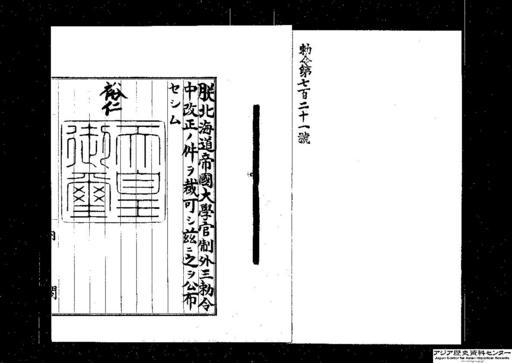 勅令第七百二十一號
朕北海道帝國大學官制外三勅令
中改正ノ件ヲ裁可シ茲ニ之ヲ公布
セシム
裕仁
天皇
御璽
内
閣
アジア歴史資料センター
Japan Center for Asian Historical Records